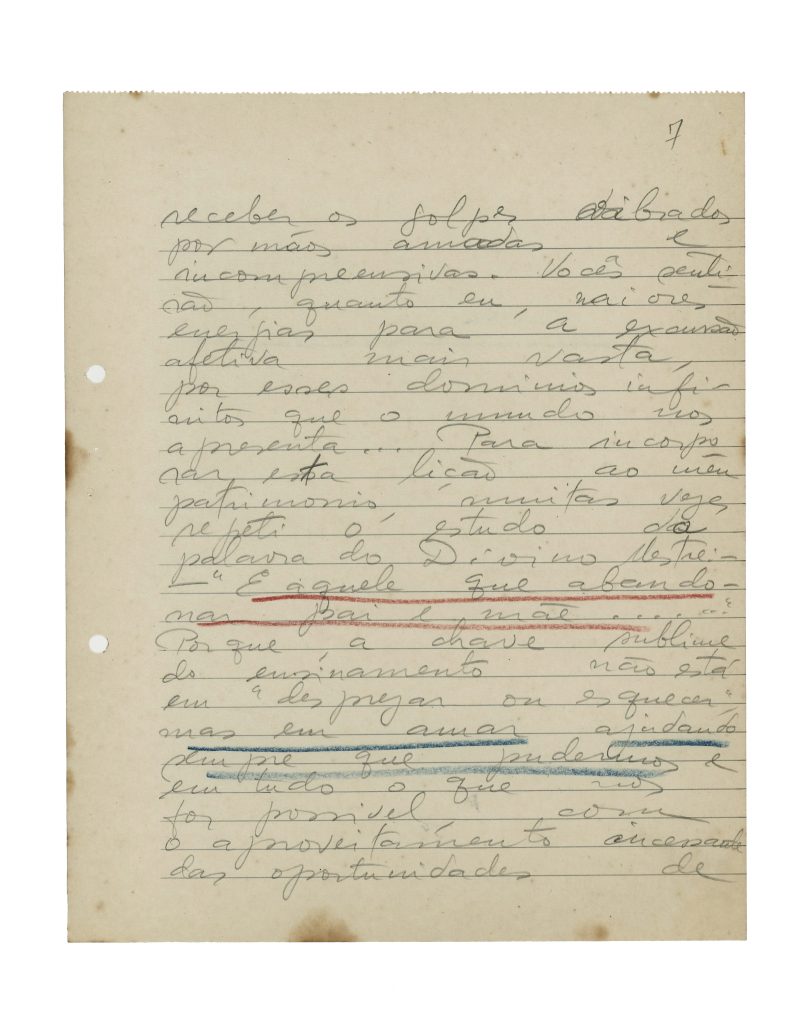 7
receber os golpes vibrados
por mãos amadas e
incompreensivas. Vocês senti-
rão, quanto eu, maiores
energias para a excursão
afetiva mais vasta,
por esses dominios infi-
nitos que o mundo nos
apresenta... Para incorpo
rar esta lição ao meu
patrimonio, muitas vezes,
repeti o estudo da
palavra do Divino Mestre:-
—"E áquele que abando-
nar pai e mãe ........"
Porque, a chave sublime
do ensinamento não está
em "desprezar ou esquecer",
mas em amar ajudando
sempre que pudermos e
em tudo o que nos
for possivel, com
o aproveitamento incessante
das oportunidades de